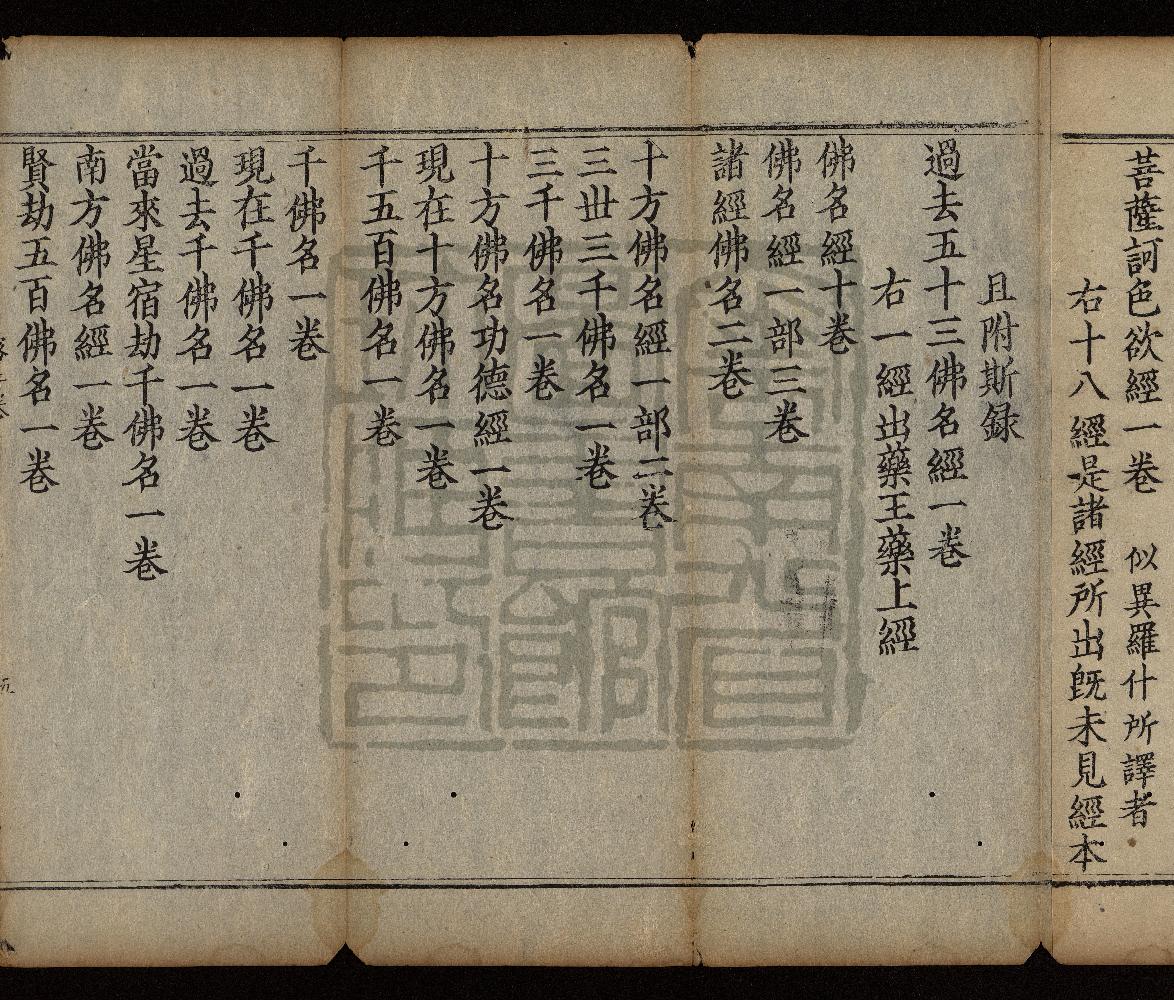 菩薩訶色欲經一卷　似異羅什所譯者
右十八經是諸經所出旣未見經本
且附斯録
過去五十三佛名經一卷
右一經出藥王藥上經
佛名經十卷
佛名經一部三卷
諸經佛名二卷
十方佛名經一部二卷
三世三千佛名一卷
三千佛名一卷
十方佛名功德經一卷
現在十方佛名一卷
千五百佛名一卷
千佛名一卷
現在千佛名一卷
過去千佛名一卷
當來星宿劫千佛名一卷
南方佛名經一卷
賢劫五百佛名一卷